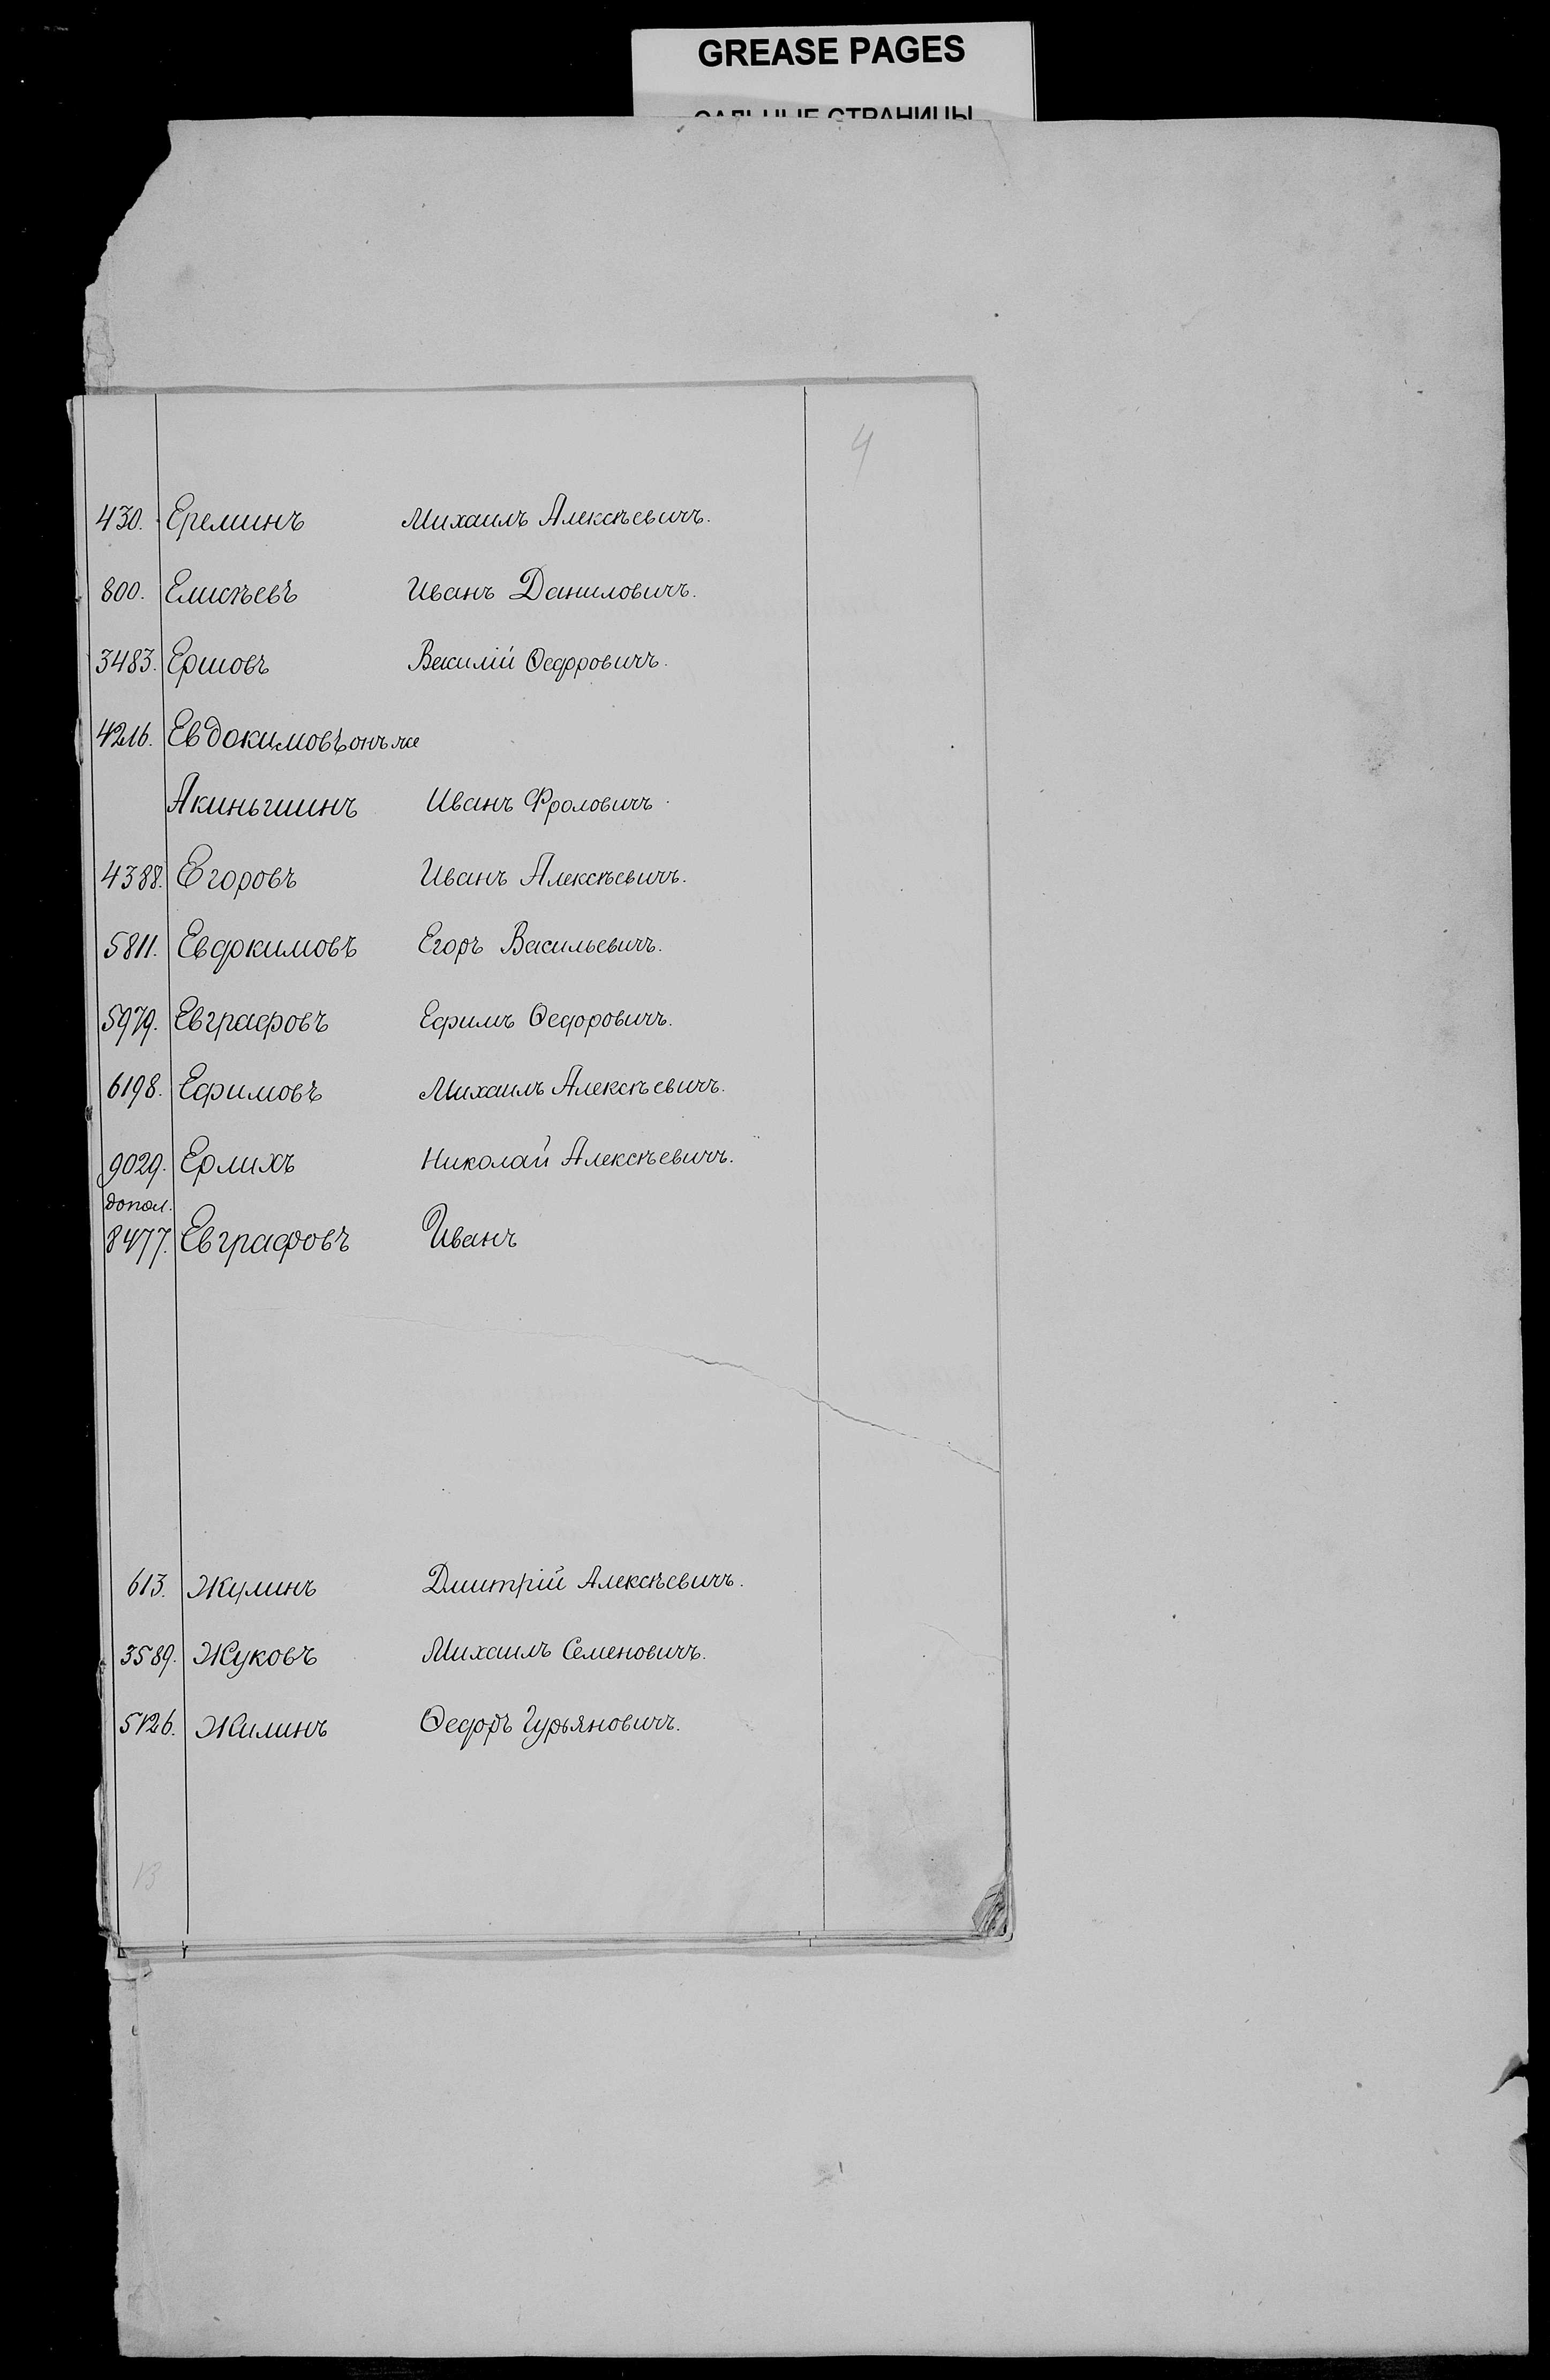 GREASE PAGES
САЛЬНЫЕ СТРАНИЦЫ
4
430. Ереминъ Михаилъ Алексѣевичъ.
800. Елисѣевъ Иванъ Даниловичъ.
3483. Ершовъ Василій Ѳедоровичъ.
4216. Евдокимовъ онъ же
Акиньшинъ Иванъ Фроловичъ.
4388. Егоровъ Иванъ Алексѣевичъ.
5811. Евдокимовъ Егоръ Васильевичъ.
5979. Евграфовъ Ефимъ Ѳедоровичъ.
6198. Ефимовъ Михаилъ Алексѣевичъ.
9029. Ерлихъ Николай Алексѣевичъ.
допол.
8477. Евграфовъ Иванъ
613. Жулинъ Дмитрій Алексѣевичъ.
3589. Жуковъ Михаилъ Семеновичъ.
5126. Жилинъ Ѳедоръ Гурьяновичъ.
13